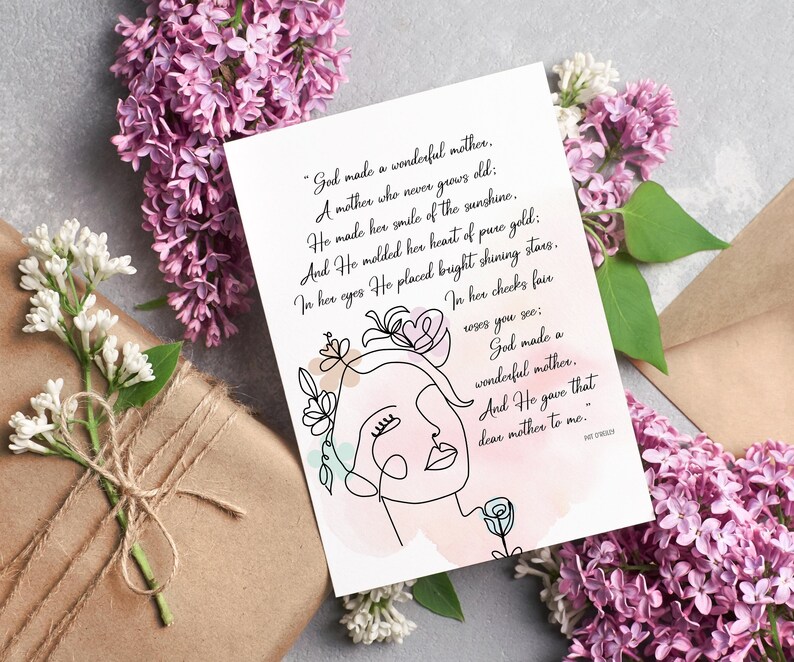 “God made a wonderful mother,
A mother who never grows old;
He made her smile of the sunshine,
And He molded her heart of pure gold;
In her eyes He placed bright shining stars,
In her cheeks fair
roses you see;
God made a
wonderful mother,
And He gave that
dear mother to me.”
PAT O'REILLY